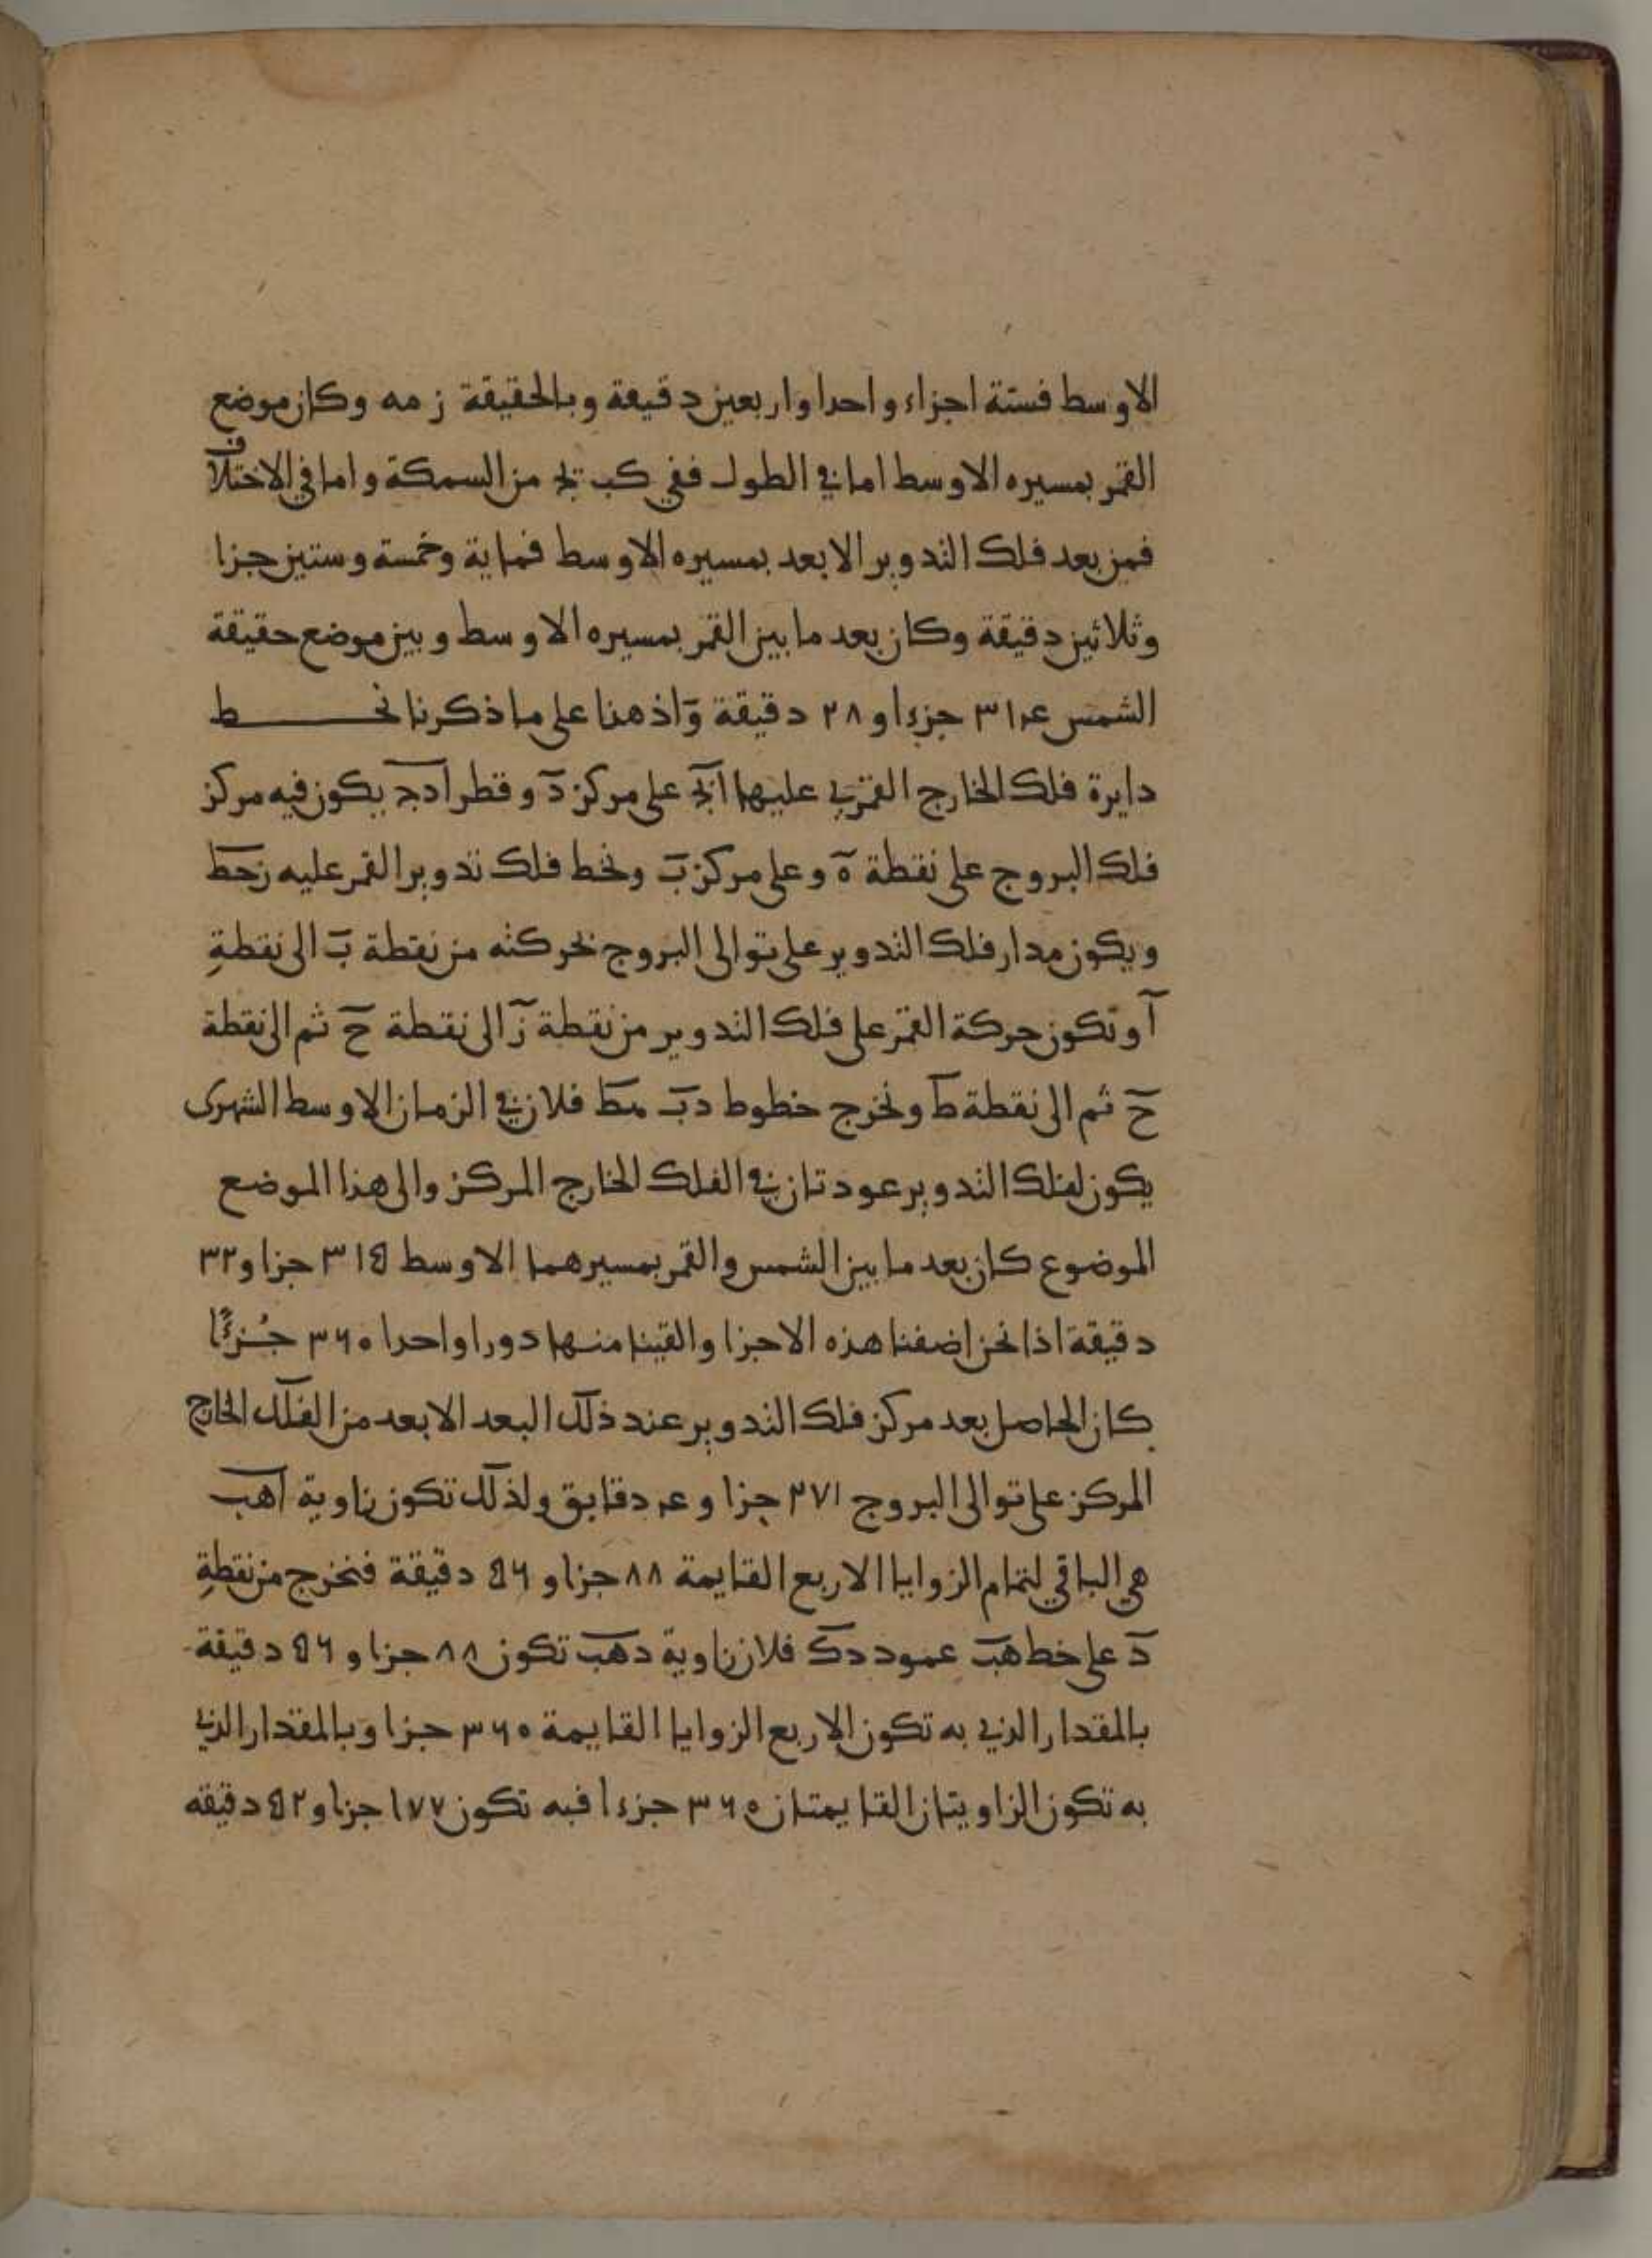 الاوسط فستة اجزاء واحدا واربعين دقيقة وبالحقيقة ز مه وكان موضع
القمر بمسيره الاوسط اما في الطول ففي كب يج من السمكة واما في الاختلاف
فمن بعد فلك التدوير الابعد بمسيره الاوسط فماية وخمسة وستين جزا
وثلاثين دقيقة وكان بعد ما بين القمر بمسيره الاوسط وبين موضع حقيقة
الشمس ٣١۴ جزءا و ٢٨ دقيقة وَاذ هنا على ما ذكرنا نخـــط
دايرة فلك الخارج القمري عليها ابج على مركز د وقطر ادج يكون فيه مركز
فلك البروج على نقطة ه وعلى مركز ب ونخط فلك تدوير القمر عليه زحط
ويكون مدار فلك التدوير على توالى البروج نحركته من نقطة ب الى نقطةِ
آ وتكون حركة القمر على فلك التدوير من نقطة ز الى نقطة ح ثم الى نقطة
ح ثم الى نقطة ط ونخرج خطوط دب فلان في الزمان الاوسط الشهرى
يكون لفلك التدوير عودتان في الفلك الخارج المركز والى هذا الموضع
الموضوع كان بعد ما بين الشمس والقمر بمسيرهما الاوسط ٣١٥ جزا و٣٢
دقيقة اذا نحن اضفنا هذه الاجزا والقينا منها دورا واحدا ٣٦٠ جُزءًا
كان الحاصل بعد مركز فلك التدوير عند ذلك البعد الابعد من الفلك الخارج
المركز على توالى البروج ٢٧١ جزا و ۴ دقايق ولذلك تكون زاوية اهب
هي الباقي لتمام الزوايا الاربع القايمة ٨٨ جزا و ٥٦ دقيقة فنخرج من نقطةِ
د على خط هب عمود دك فلان زاوية دهب تكون ٨٨ جزا و ٥٦ دقيقة
بالمقدار الذي به تكون الاربع الزوايا القايمة ٣٦٠ جزا وبالمقدار الذي
به تكون الزاويتان القايمتان ٣٦٠ جزءا فبه تكون ١٧٧ جزا و ٥٢ دقيقه